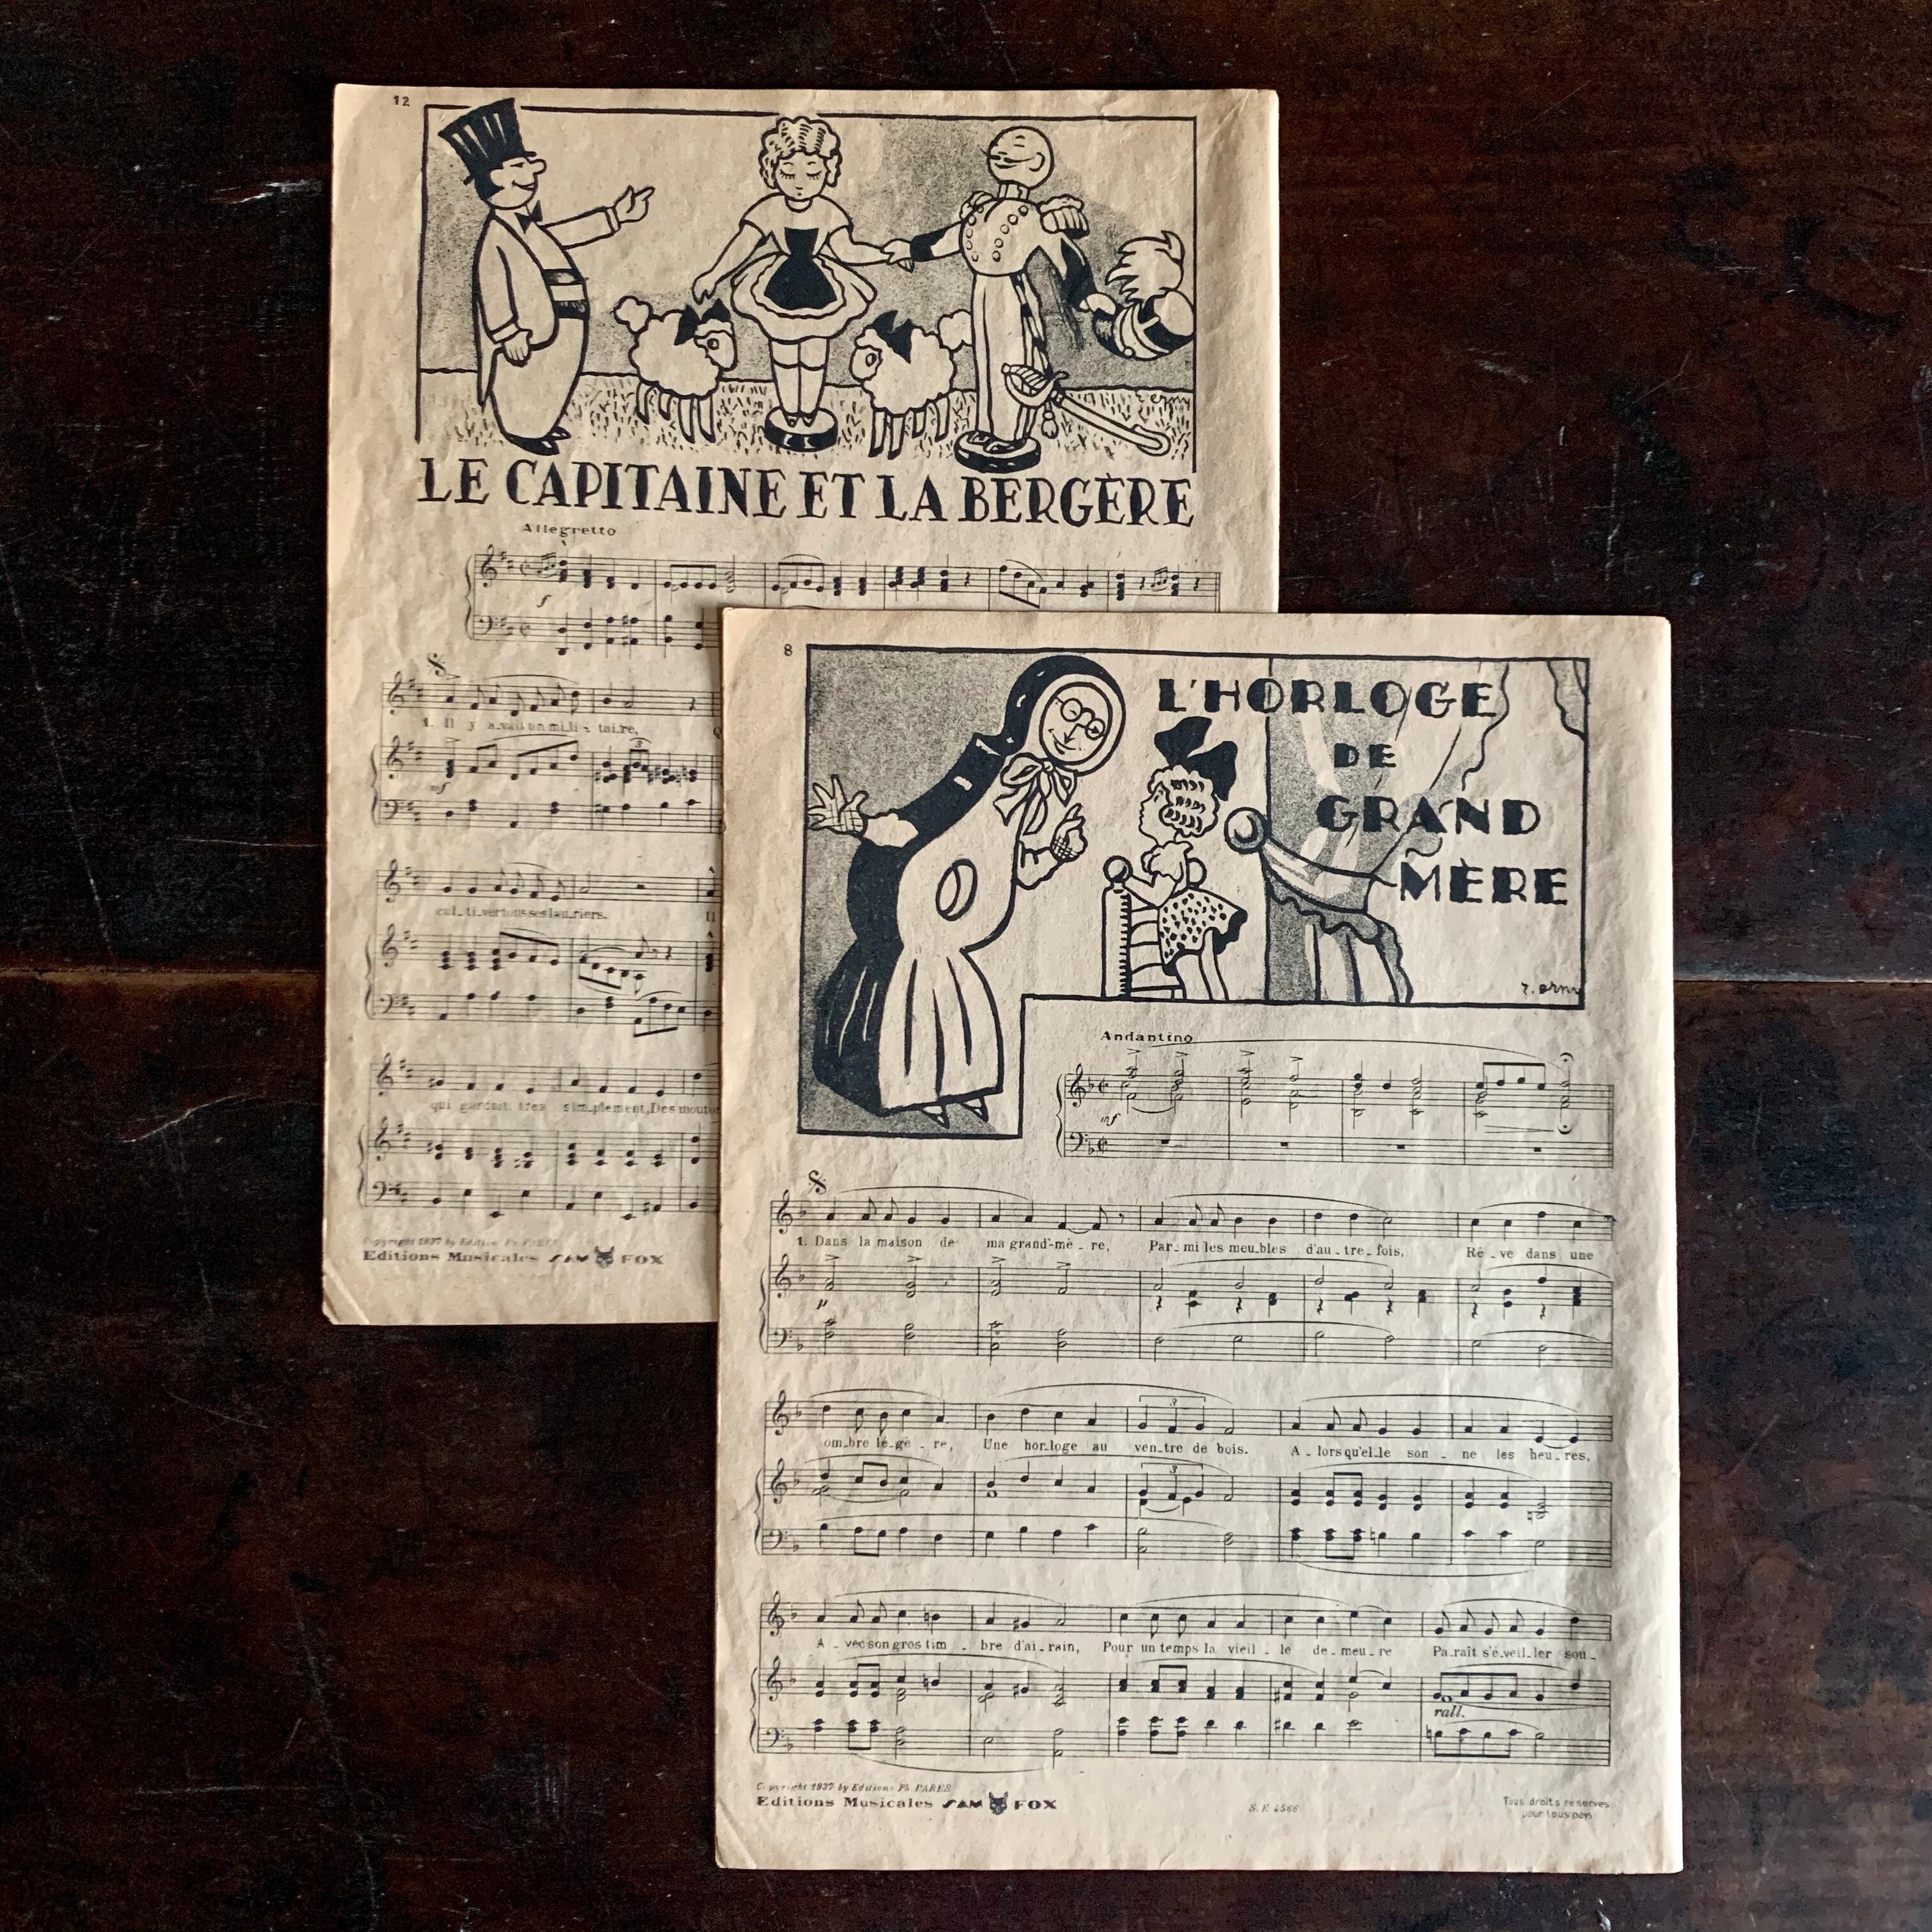 12
LE CAPITAINE ET LA BERGÈRE
Allegretto
f
1. Il y a_vait un mi_li_tai_re,
mf
cul_ti_ver tous ses lau_riers. Il
qui gardait très sim_plement, Des mouto
Copyright 1937 by Edition Ph. PARÈS
Editions Musicales SAM FOX
8
L'HORLOGE
DE
GRAND
MÈRE
Andantino
mf
1. Dans la maison de ma grand'-mè_re, Par_mi les meu_bles d'au_tre_fois, Rê_ve dans une
p
om_bre lé_gè_re, Une hor_loge au ven_tre de bois. A_lors qu'el_le son_ne les heu_res,
3
3
A_vec son gros tim_bre d'ai_rain, Pour un temps la vieil_le de_meu_re Pa_raît s'é_veil_ler sou_
rall.
Copyright 1937 by Editions Ph. PARÈS
Editions Musicales SAM FOX
Tous droits réservés
pour tous pays